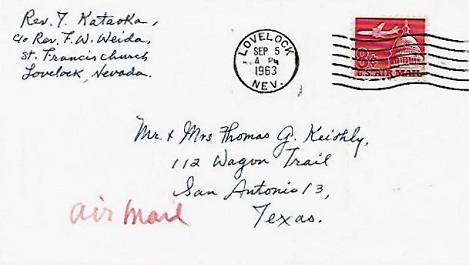 Rev. Y. Kataoka,
c/o Rev. F. W. Weida,
St. Francis church
Lovelock, Nevada.
LOVELOCK
SEP 5
4 PM
1963
NEV.
8¢
U.S. AIR MAIL
Mr. + Mrs Thomas G. Keighly,
112 Wagon Trail
San Antonio 13,
Texas.
air mail